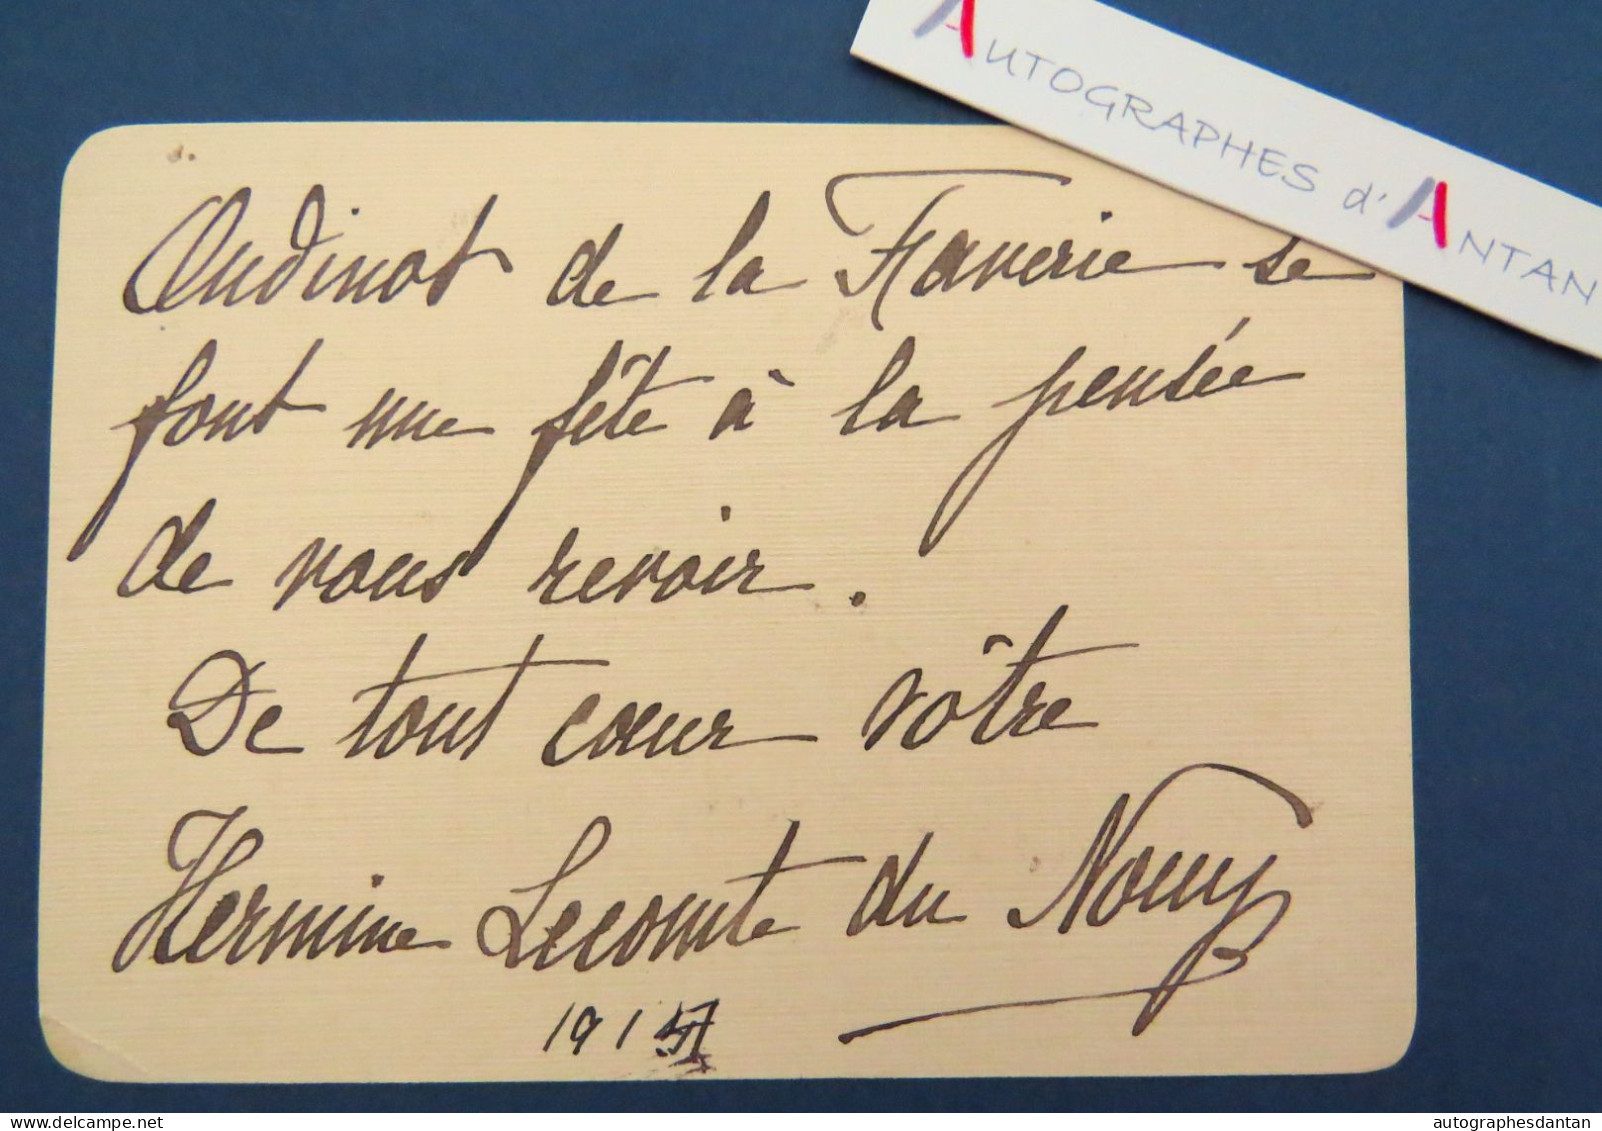 AUTOGRAPHES d'ANTAN
Oudinot de la Faverie se
font une fête à la pensée
de vous revoir.
De tout cœur vôtre
Hermine Lecomte du Nouÿ
191
autographesdantan